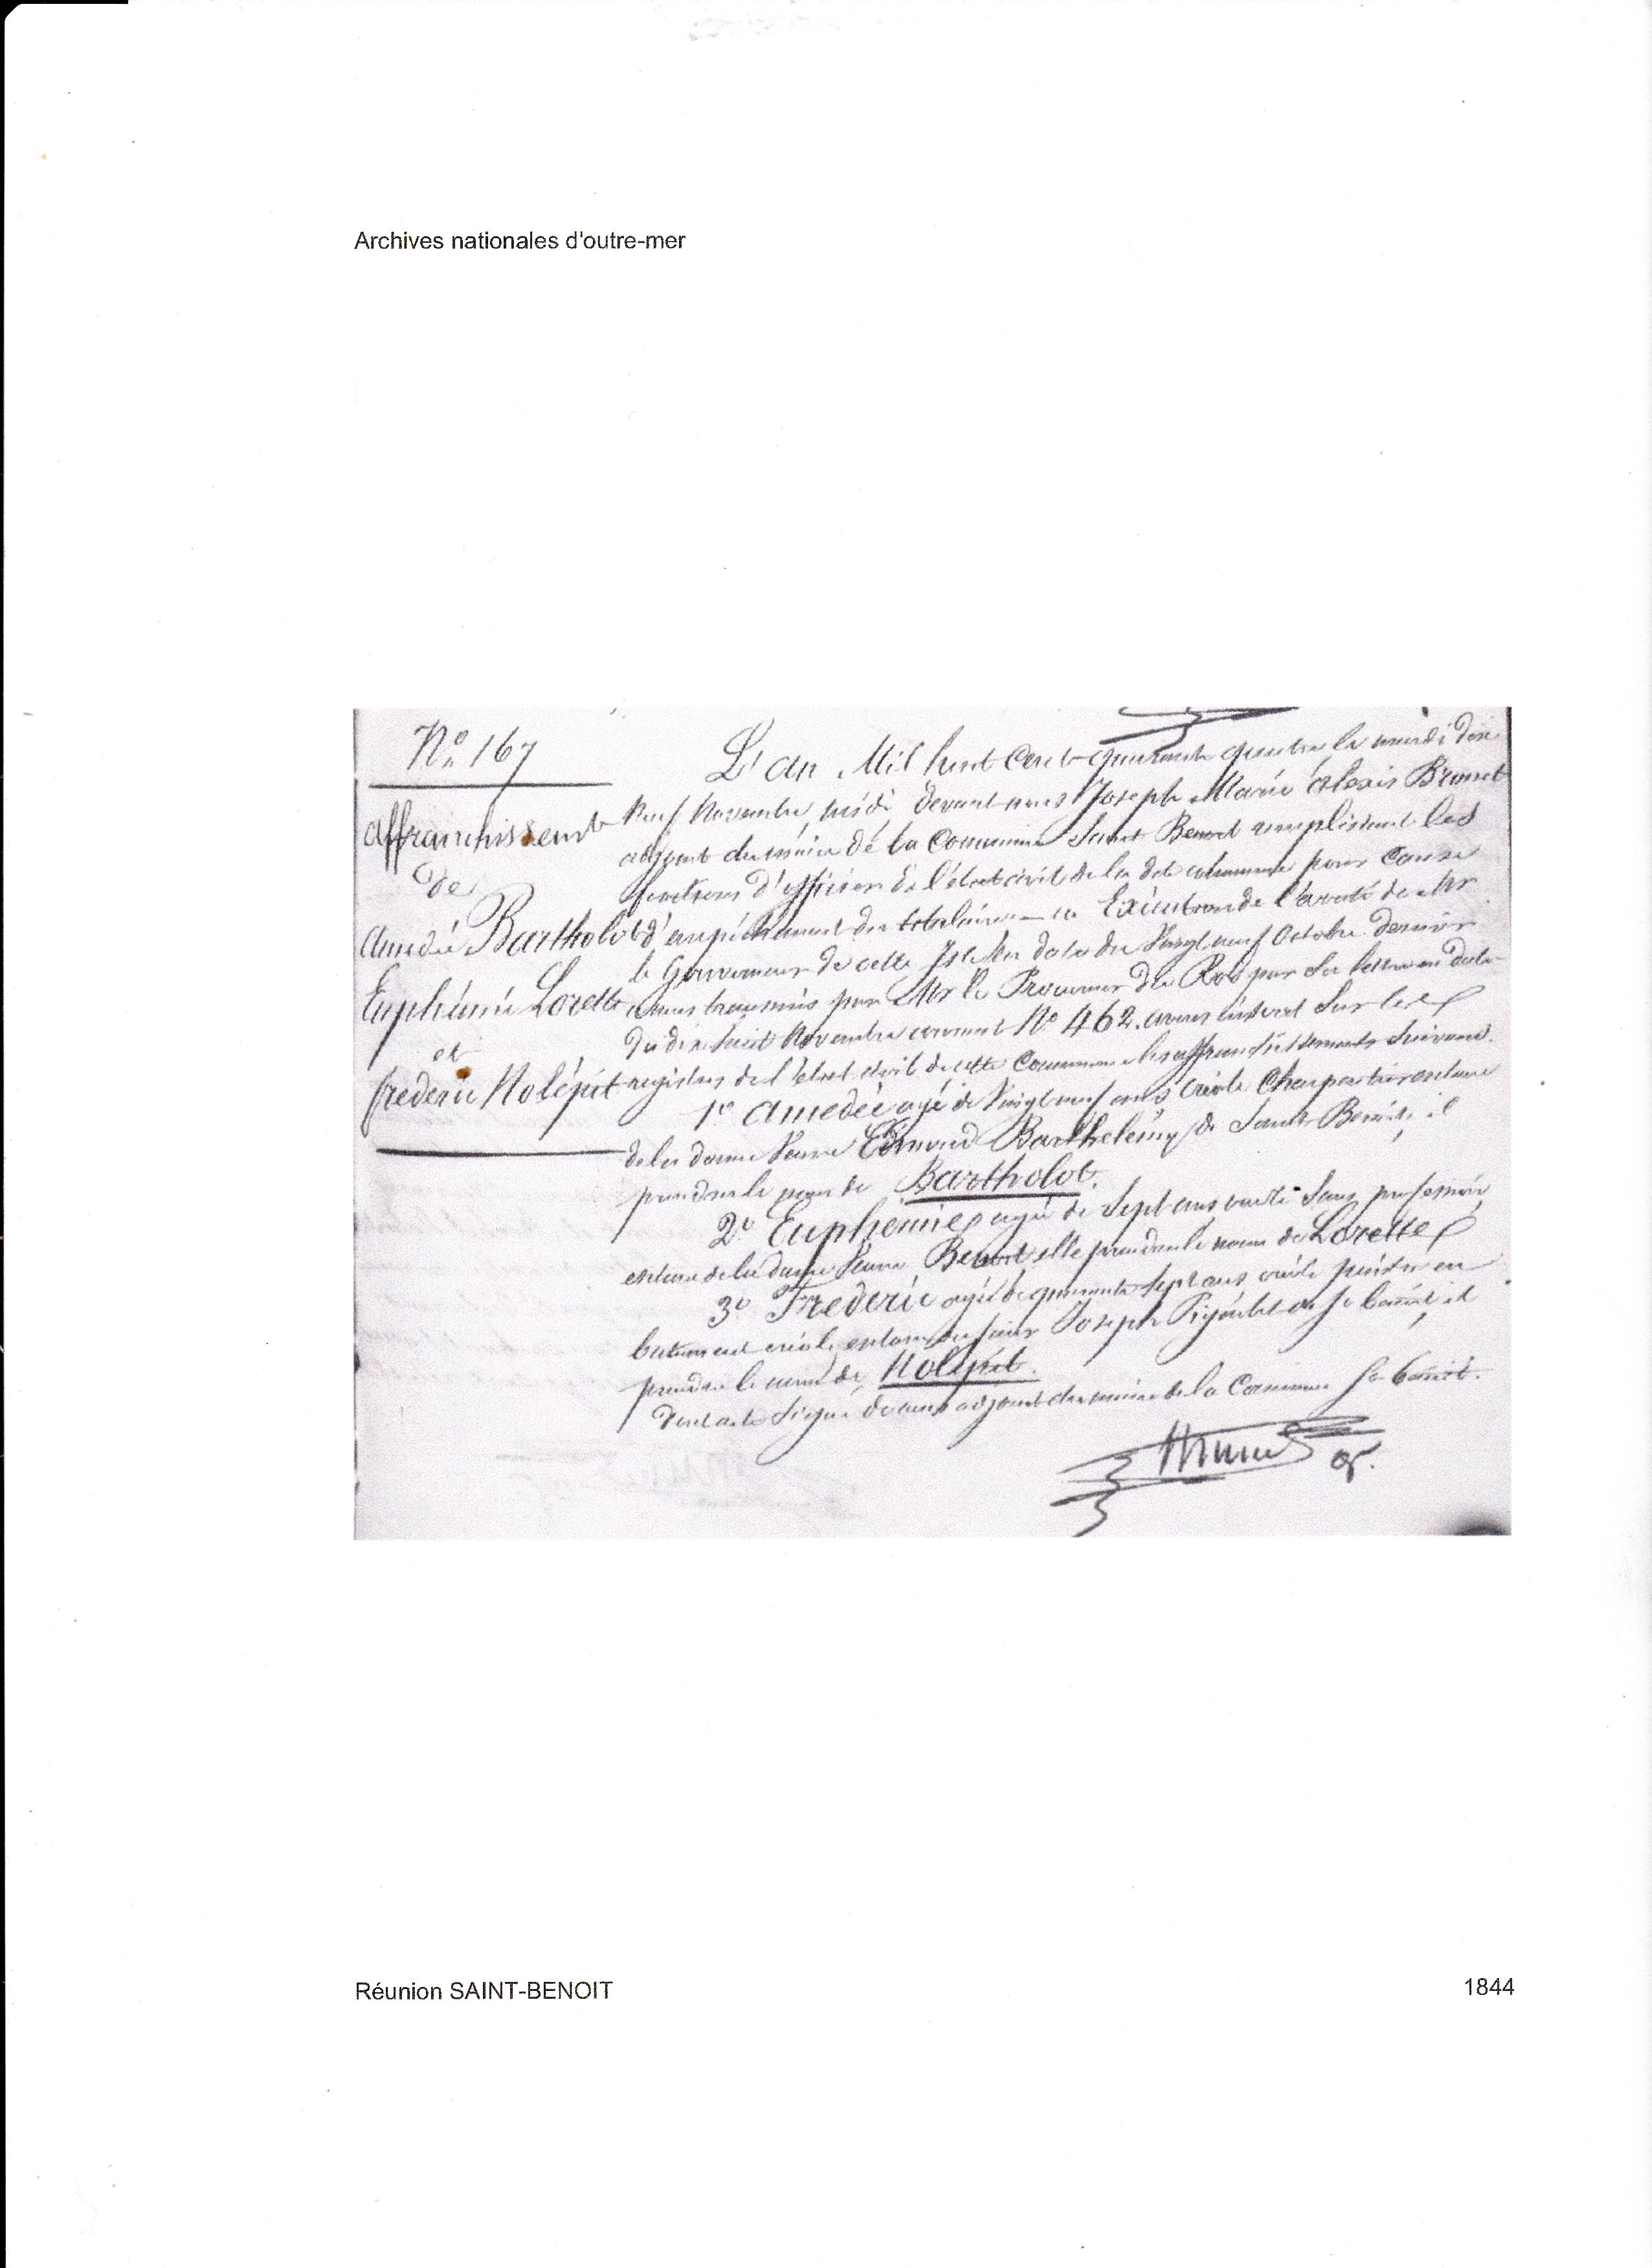 Archives nationales d'outre-mer
No. 167
affranchissement
de
Amédée Bartholot
Euphémie Lorette
et
frederic Nolépit
L'an Mil huit Cent quarante quatre le mardi dix
Neuf Novembre, midi devant nous Joseph Marie Alexis Brunet
adjoint du maire de la Commune Saint Benoit remplissant les
fonctions d'officier de l'état civil de la dite commune pour Cause
d'empêchement du titulaire en Exécution de l'arrêté de Mr
le Gouverneur de cette Isle en date du Vingt neuf Octobre dernier
à nous transmis par Mr le Procureur du Roi par sa lettre en date
du dix huit Novembre courant No 462. avons inscrit sur les
registres de l'état civil de cette Commune les affranchissements suivans.
1o Amedée agé de Vingt neuf ans Créole Charpentier esclave
de la dame Veuve Edmond Barthelemy de Saint Benoit, il
prendra le nom de Bartholot.
2o Euphemie agée de Sept ans caste sans profession,
esclave de la dame Veuve Benoit elle prendra le nom de Lorette
3o Frederic agé de quarante Sept ans peintre en
batiment créole esclave du sieur Joseph de St benoit, il
prendra le nom de Nolépit.
Dont acte Signé de nous adjoint du maire de la Commune St benoit.
Brunet
Réunion SAINT-BENOIT
1844